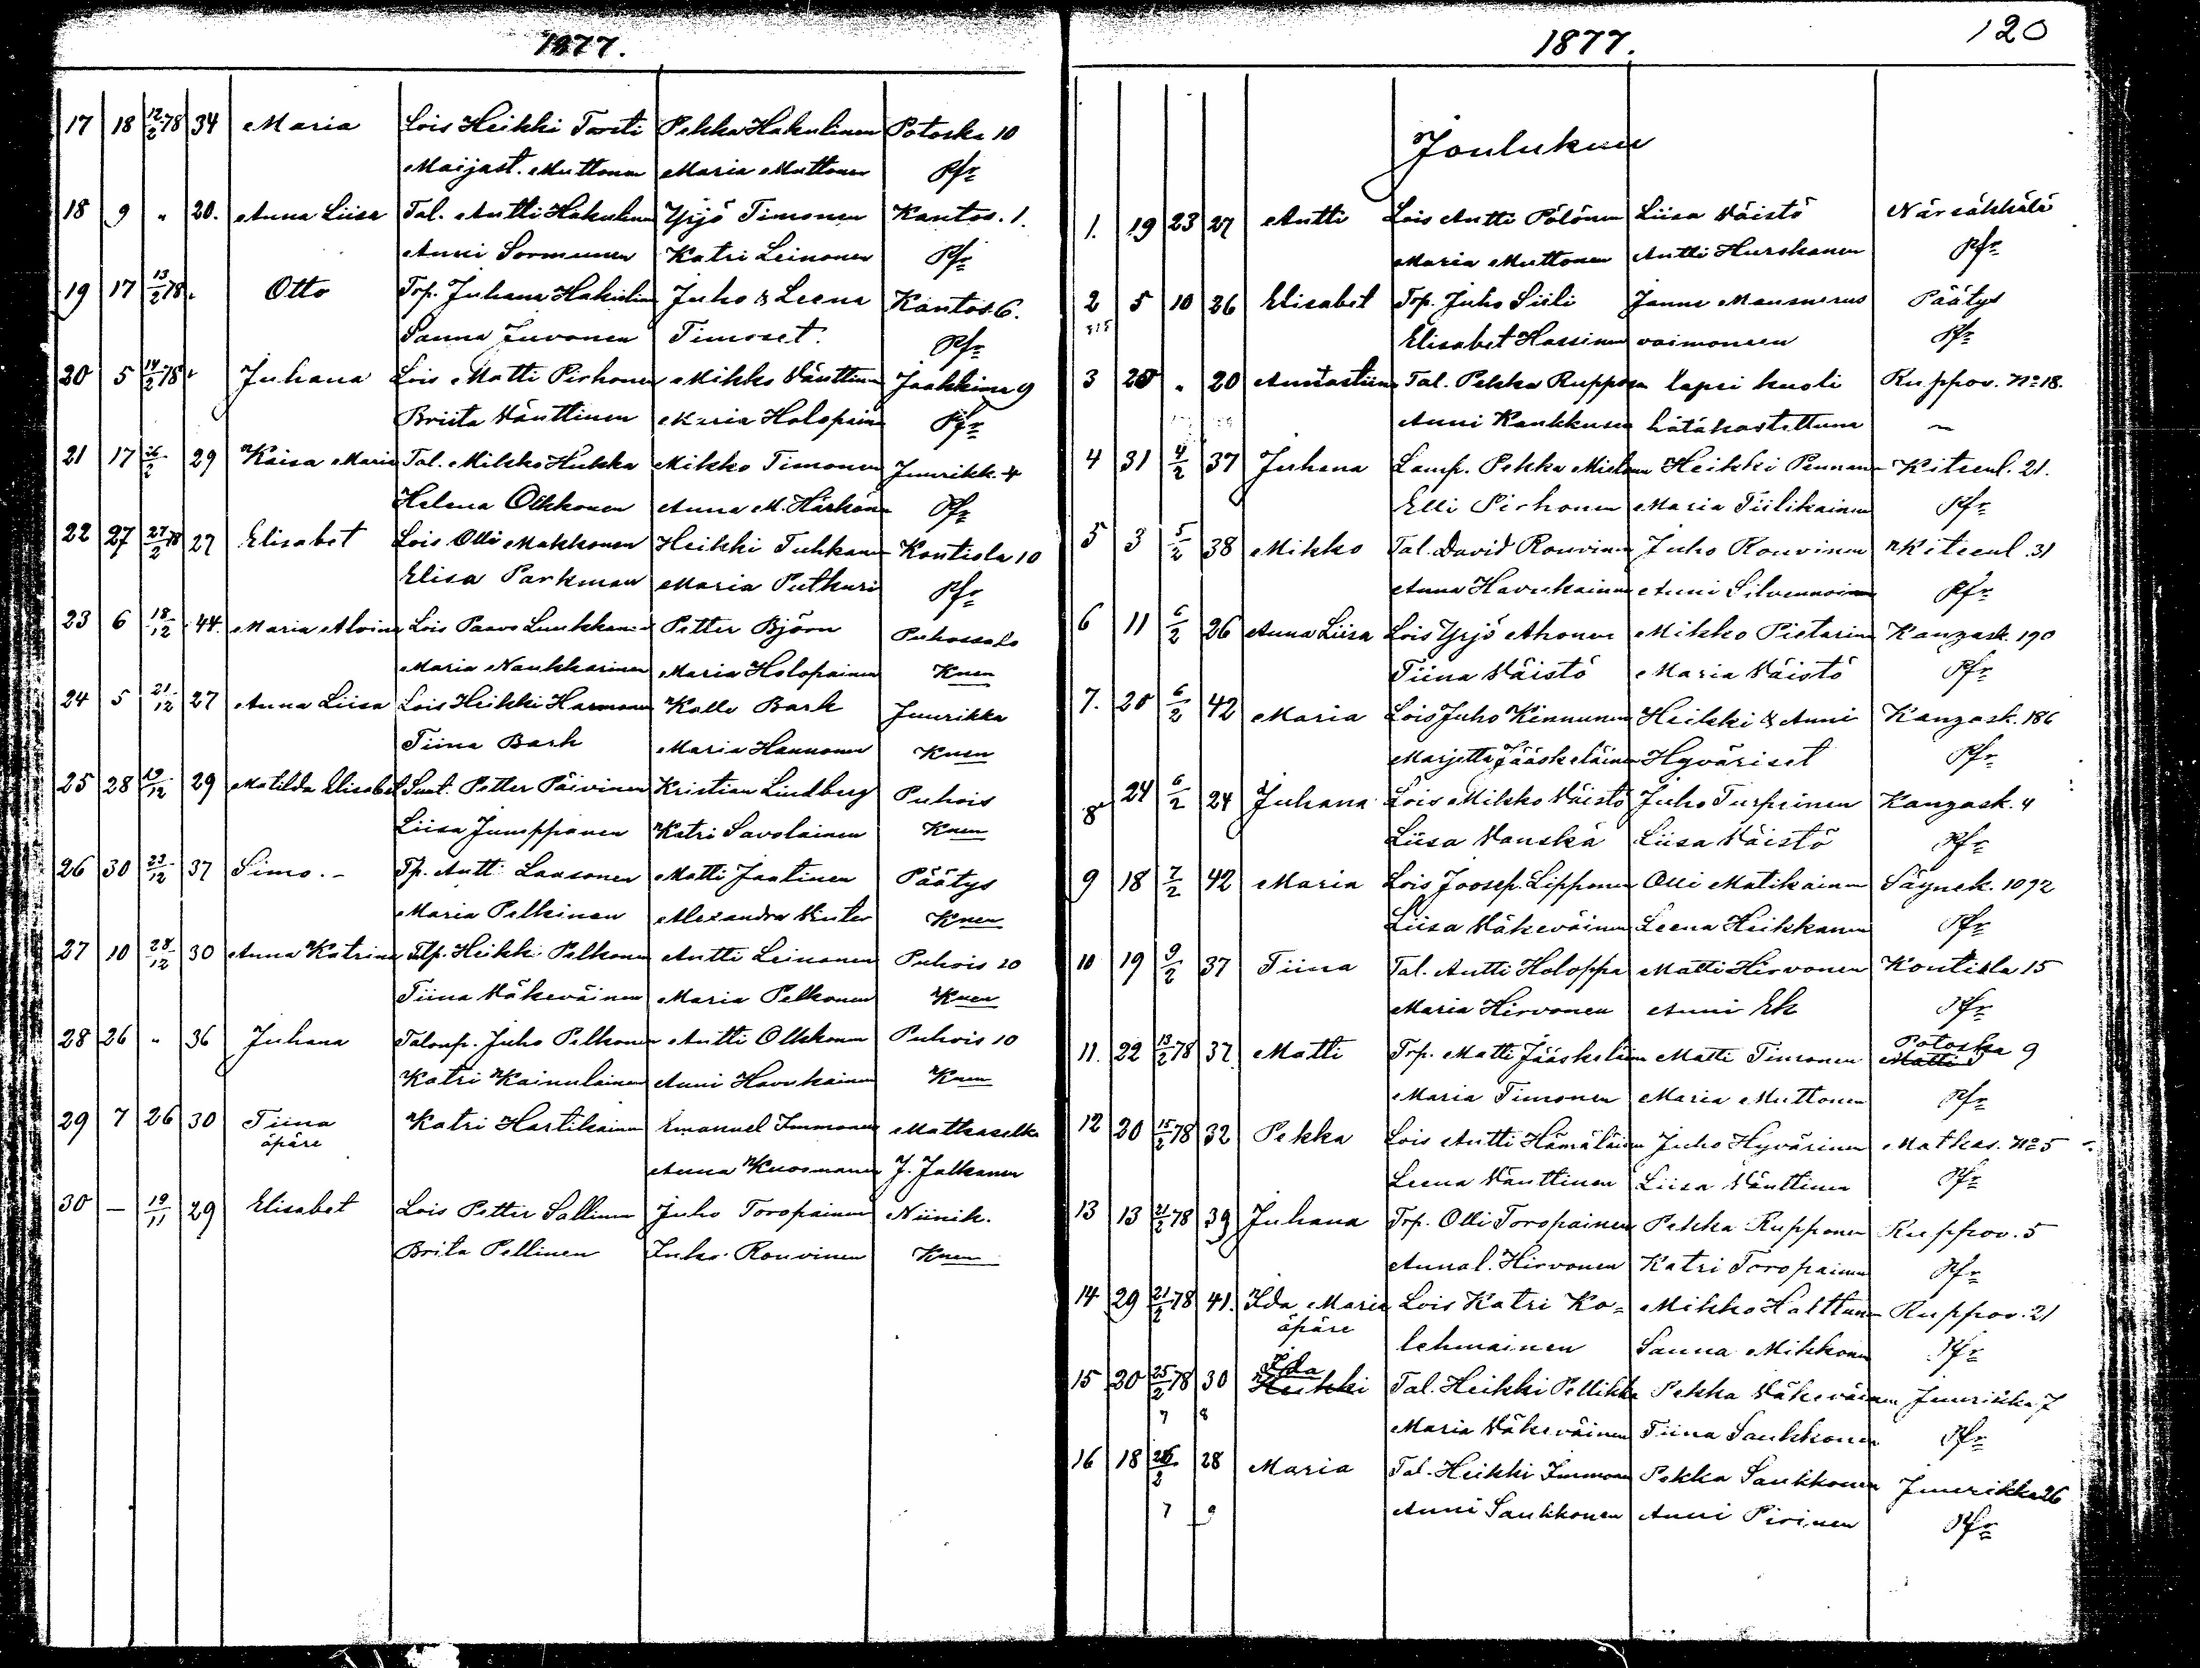 1877.
17 18 12/2 78 34 Maria Lois Heikki Torsti Pekka Hakulinen Potoska 10
Maijast. Muttonen Maria Muttonen Pfr
18 9 " 20. Anna Liisa Tal. Antti Hakulinen Yrjö Timonen Kantos. 1.
Anni Sormunen Katri Leinonen Pfr
19 17 13/2 78 " Otto Trp. Juhana Hakulin Juho & Leena Kantos. 6.
Sanna Juvonen Timoset. Pfr
20 5 14/2 78 " Juhana Lois Matti Pirhonen Mikko Vänttinen Jaakkima 9
Briita Vänttinen Maria Holopainen Pfr
21 17 26/2 29 Kaisa Maria Tal. Mikko Hukka Mikko Timonen Juurikk. 4
Helena Olkkonen Anna M. Härkönen Pfr
22 27 27/2 78 27 Elisabet Lois Olli Makkonen Heikki Tuhkanen Kontiola 10
Elisa Parkman Maria Putkuri Pfr
23 6 18/12 44. Maria Alvina Lois Paavo Luukkanen Petter Björn Puhossalo
Maria Naukkarinen Maria Holopainen Knen
24 5 21/12 27 Anna Liisa Lois Heikki Harmonen Kalle Bark Juurikka
Tiina Bark Maria Hannonen Knen
25 28 19/12 29 Matilda Elisabet Suut. Petter Päivinen Kristian Lindberg Puhois
Liisa Jumppanen Katri Savolainen Knen
26 30 23/12 37 Simo. - Tp. Antti Laasonen Matti Jaatinen Päätys
Maria Pelkinen Alexandra Winter Knen
27 10 28/12 30 Anna Katrina Tlp. Heikki Pelkonen Antti Leinonen Puhois 20
Tiina Väkeväinen Maria Pelkonen Knen
28 26 " 36 Juhana Talonp. Juho Pelkonen Antti Olkkonen Puhois 10
Katri Kainulainen Anni Havukainen Knen
29 7 26 30 Tiina Katri Hartikainen Emanuel Immonen Matkaselkä
äpäre
Anna Kuosmanen J. Jalkanen
30 — 19/11 29 Elisabet Lois Petter Sallinen Juho Toropainen Niinik.
Brita Pellinen Juho Rouvinen Knen
1877. 120
Joulukuu
1. 19 23 27 Antti Lois Antti Pölönen Liisa Väistö Närsäkkälä
Maria Muttonen Antti Hurskanen Pfr
2 5 10 26 Elisabet Trp. Juho Siili Janne Mansnerus Päätys
Elisabet Hassinen vaimoneen Pfr
3 20 " 20 Tal. Pekka Rupponen lapsi kuoli Ruppov. No 18.
Anni Kaukkunen hätäkastettuna ~
4 31 4/2 37 Juhana Lamp. Pekka Mielonen Heikki Pennanen Kiteenl. 21.
Elli Pirhonen Maria Tiilikainen Pfr
5 3 5/2 38 Mikko Tal. David Rouvinen Juho Rouvinen Kiteenl. 31
Anna Havukainen Anni Silvennoinen Pfr
6 11 6/2 26 Anna Liisa Lois Yrjö Ahonen Mikko Pietarinen Kangask. 190
Tiina Väistö Maria Väistö Pfr
7. 20 6/2 42 Maria Lois Juho Kinnunen Heikki & Anni Kangask. 186
Marjetta Jääskeläinen Hyväriset Pfr
8 24 6/2 24 Juhana Lois Mikko Väistö Juho Turpeinen Kangask. 4
Liisa Vanska Liisa Väistö Pfr
9 18 7/2 42 Maria Lois Joosep. Lipponen Olli Matikainen Säynek. 1092
Liisa Väkeväinen Leena Heikkanen Pfr
10 19 9/2 37 Tiina Tal. Antti Holoppa Matti Hirvonen Kontiola 15
Maria Hirvonen Anni Ek Pfr
11. 22 13/2 78 37. Matti Trp. Matti Jääskeläinen Matti Timonen Potoska 9
Matti
Maria Timonen Maria Muttonen Pfr
12 20 15/2 78 32 Pekka Lois Antti Hämäläinen Juho Hyvärinen Matkas. No 5
Leena Vänttinen Liisa Vänttinen Pfr
13 13 21/2 78 39 Juhana Trp. Olli Toropainen Pekka Rupponen Ruppov. 5
Annal. Hirvonen Katri Toropainen Pfr
14 29 21/2 78 41. Ida Maria Lois Katri Ko- Mikko Halttunen Ruppov. 21
äpäre
lehmainen Sanna Mikkonen Pfr
Ida
15 20 25/2 78 30 Heikki Tal. Heikki Pellikka Pekka Väkeväinen Juurikka 7
7 8
Maria Väkeväinen Tiina Saukkonen Pfr
16 18 26/2 28 Maria Tal. Heikki Immonen Pekka Saukkonen Juurikka 26
7 9
Anni Saukkonen Anni Pirinen Pfr